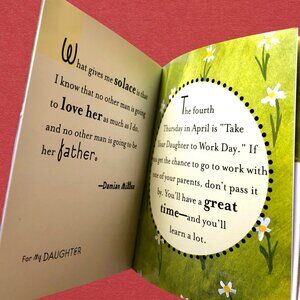 What gives me solace is that
I know that no other man is going
to love her as much as I do,
and no other man is going to be
her father.
—Damian Millon
For My DAUGHTER
The fourth
Thursday in April is "Take
Your Daughter to Work Day." If
you get the chance to go to work with
one of your parents, don't pass it
by. You'll have a great
time—and you'll
learn a lot.